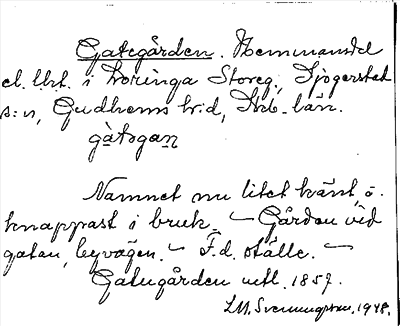 Gategården. Hemmansdel
el. lht. i Loringa Storeg., Sjogerstad
s:n, Gudhems h:d, Skb. län.
gàtɔgan
Namnet nu litet känt o.
knappast i bruk. — Gården vid
gatan, byvägen. — F.d. ställe. —
Gatugården utl. 1857.
L.M. Svenungsson, 1948.